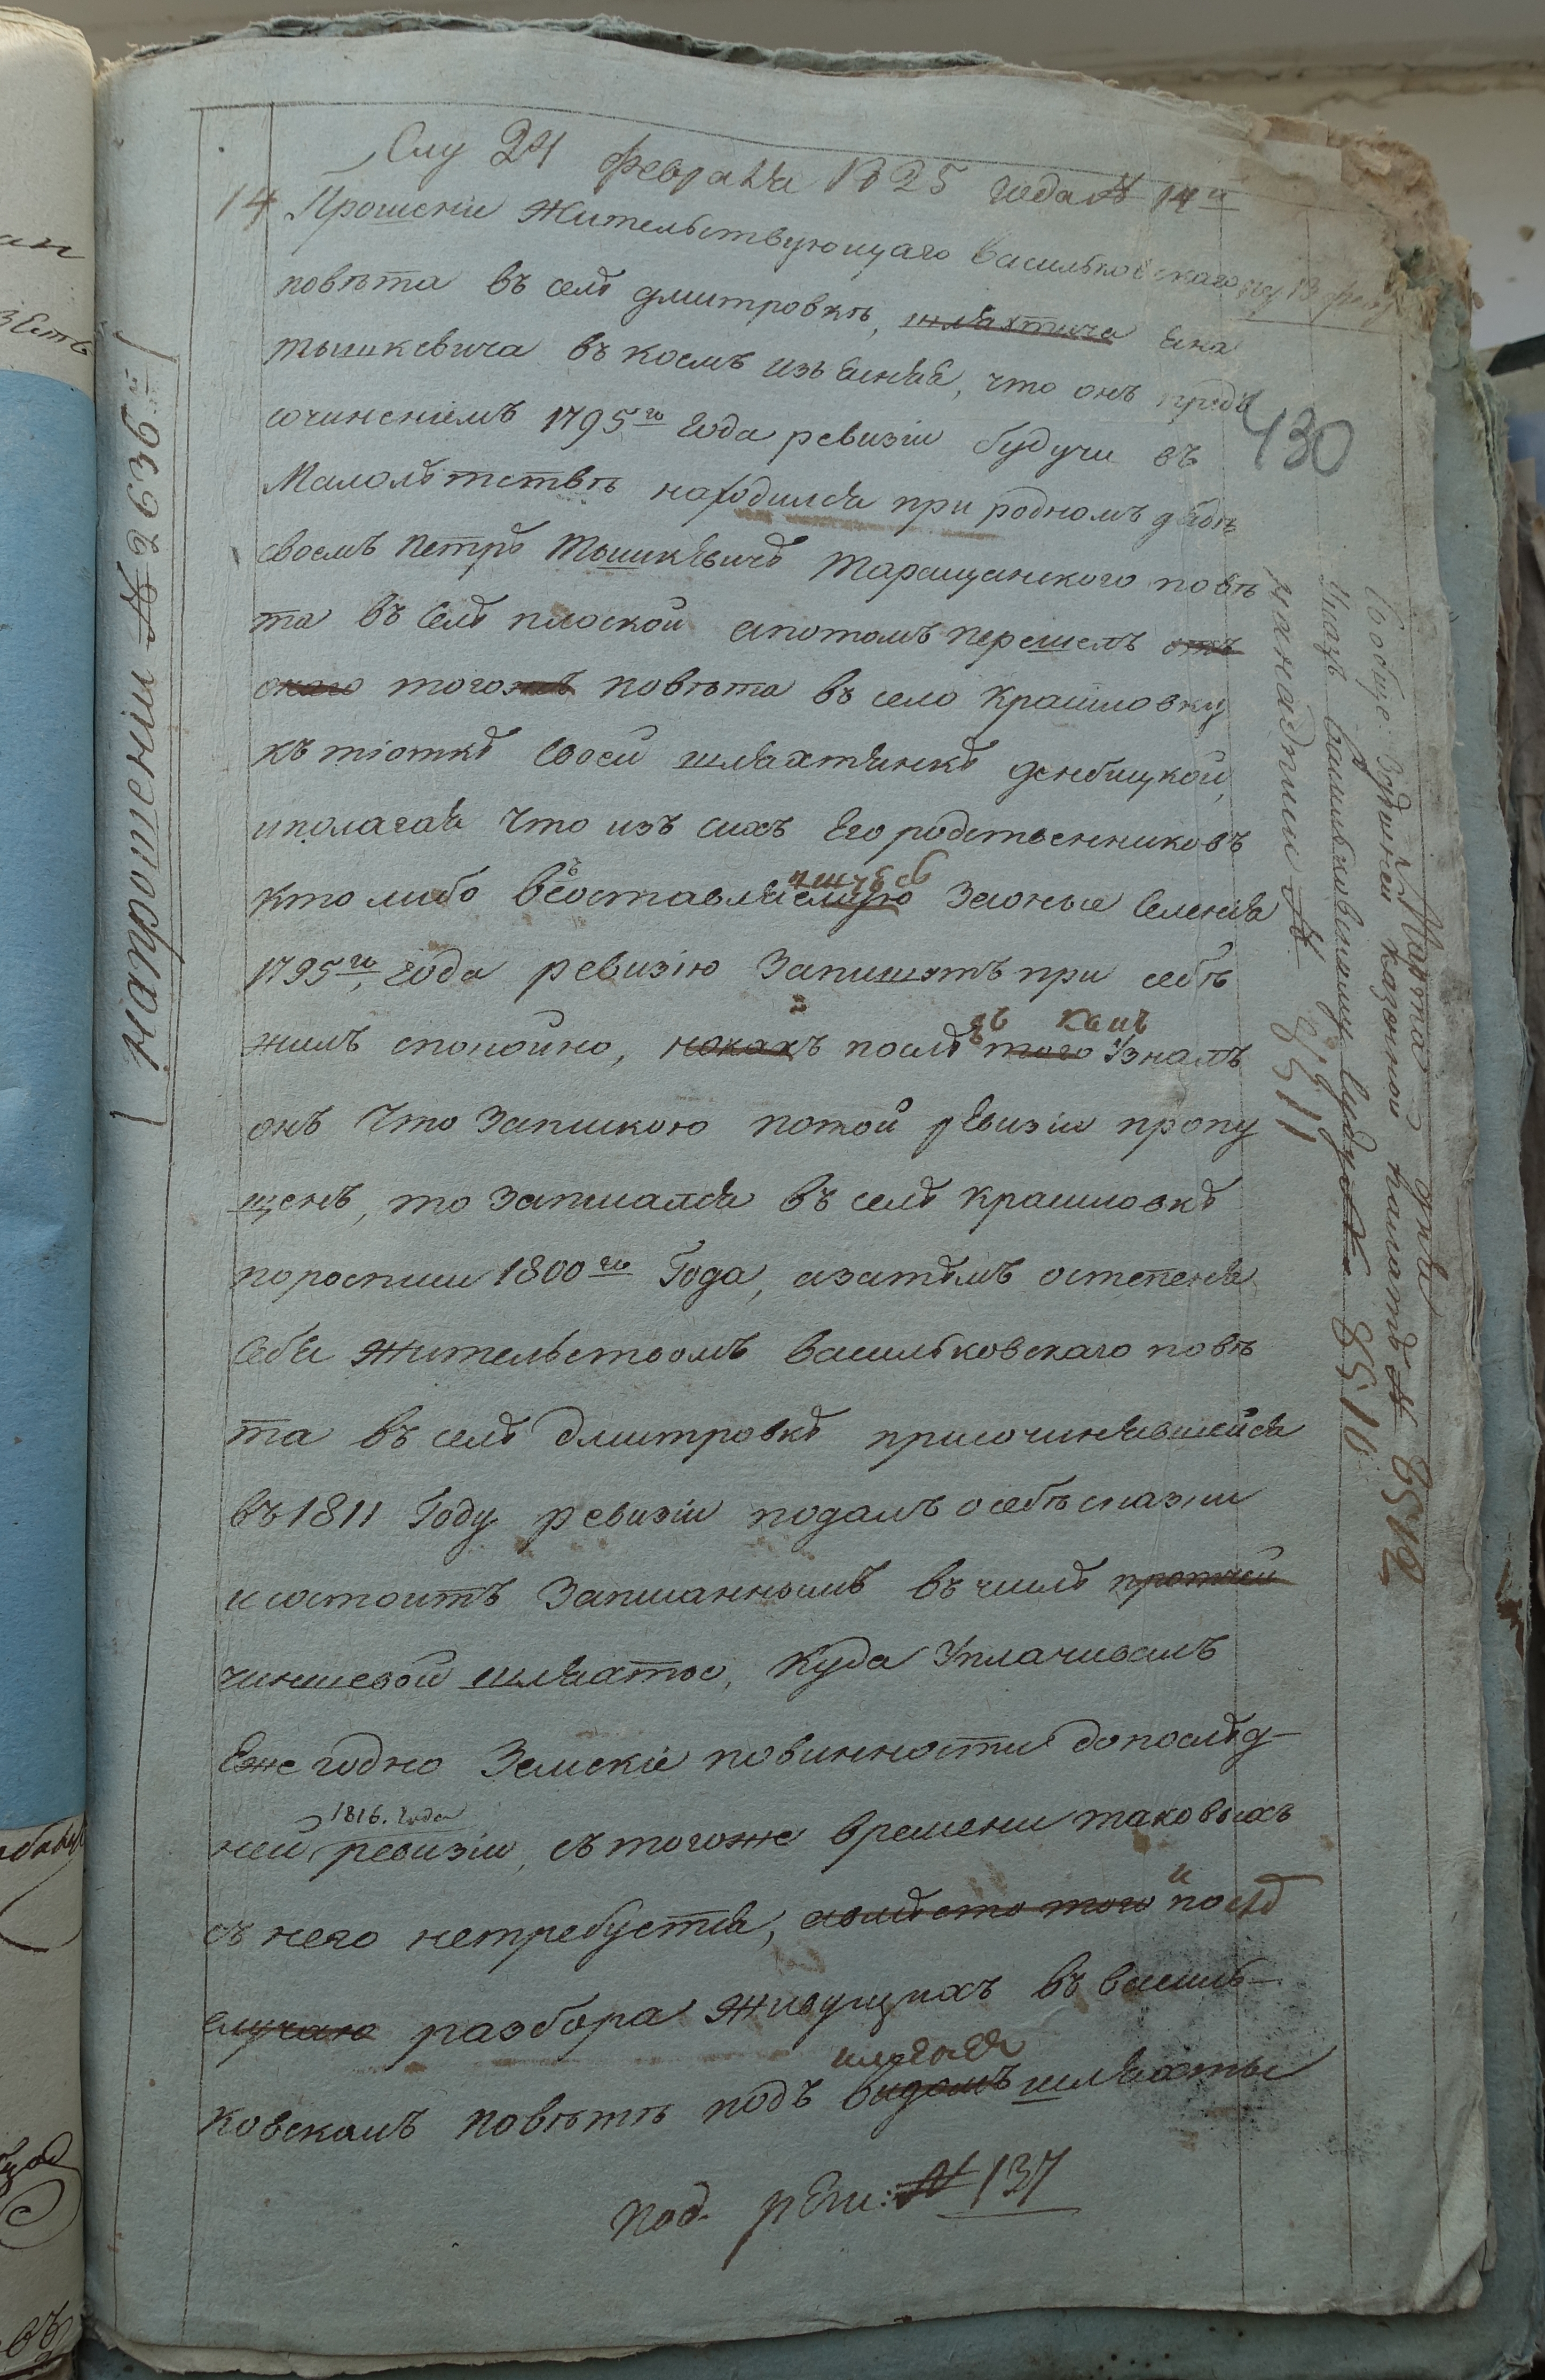 Слу 24 февраля 1825 года № 14й
14 Прошение Жительствующаго Васильковскаго
повѣта въ селѣ дмитровкѣ, шляхтича Яна
тышкевича въ коемъ изъясняя, что онъ предъ
сочиненіемъ 1795го Года ревизіи будучи въ
Малолѣтствѣ находился при родномъ дядѣ
своемъ Петрѣ Тышкѣвичѣ Таращанского повѣ
та въ селѣ плоской апотомъ перешелъ
тогожъ повѣта въ село Крашловку
къ тіоткѣ своей шляхтянкѣ денбицкой,
иполагая что изъ сихъ Его родственниковъ
кто либо въ составляемую
1795го, Года ревизію Запишятъ при себѣ
жилъ спокойно, нокакъ послѣ того Узналъ
въ
онъ Что Запискою потой рѣвизіи пропу
щенъ, то Записался въ селѣ крашловкѣ
поросписи 1800го Года, азатѣмъ остепеня
себя жительствомъ васильковскаго повѣ
та въ селѣ дмитровкѣ присочинявшейся
въ 1811 Году ревизіи подалъ о себѣ сказки
исостоитъ Записаннымъ въ числѣ протчей
чиншевой шляхты, куда Уплачивалъ
Ежегодно Земскіе повинности допослѣд-
1816. года
ней ревизіи, стогоже времени таковыхъ
съ него нетребуется, авмѣсто того послѣ
и
случаю разбора живущихъ въ василь-
ковскомъ повѣтѣ подъ видомъ шляхты
Под. рѣги: № 137
430
напрошеніи № 2639й
Марта дня
Сообще: здѣшней казенной палатѣ № 8512
Указъ Васильковскому суду № 8510
надписи № 8511